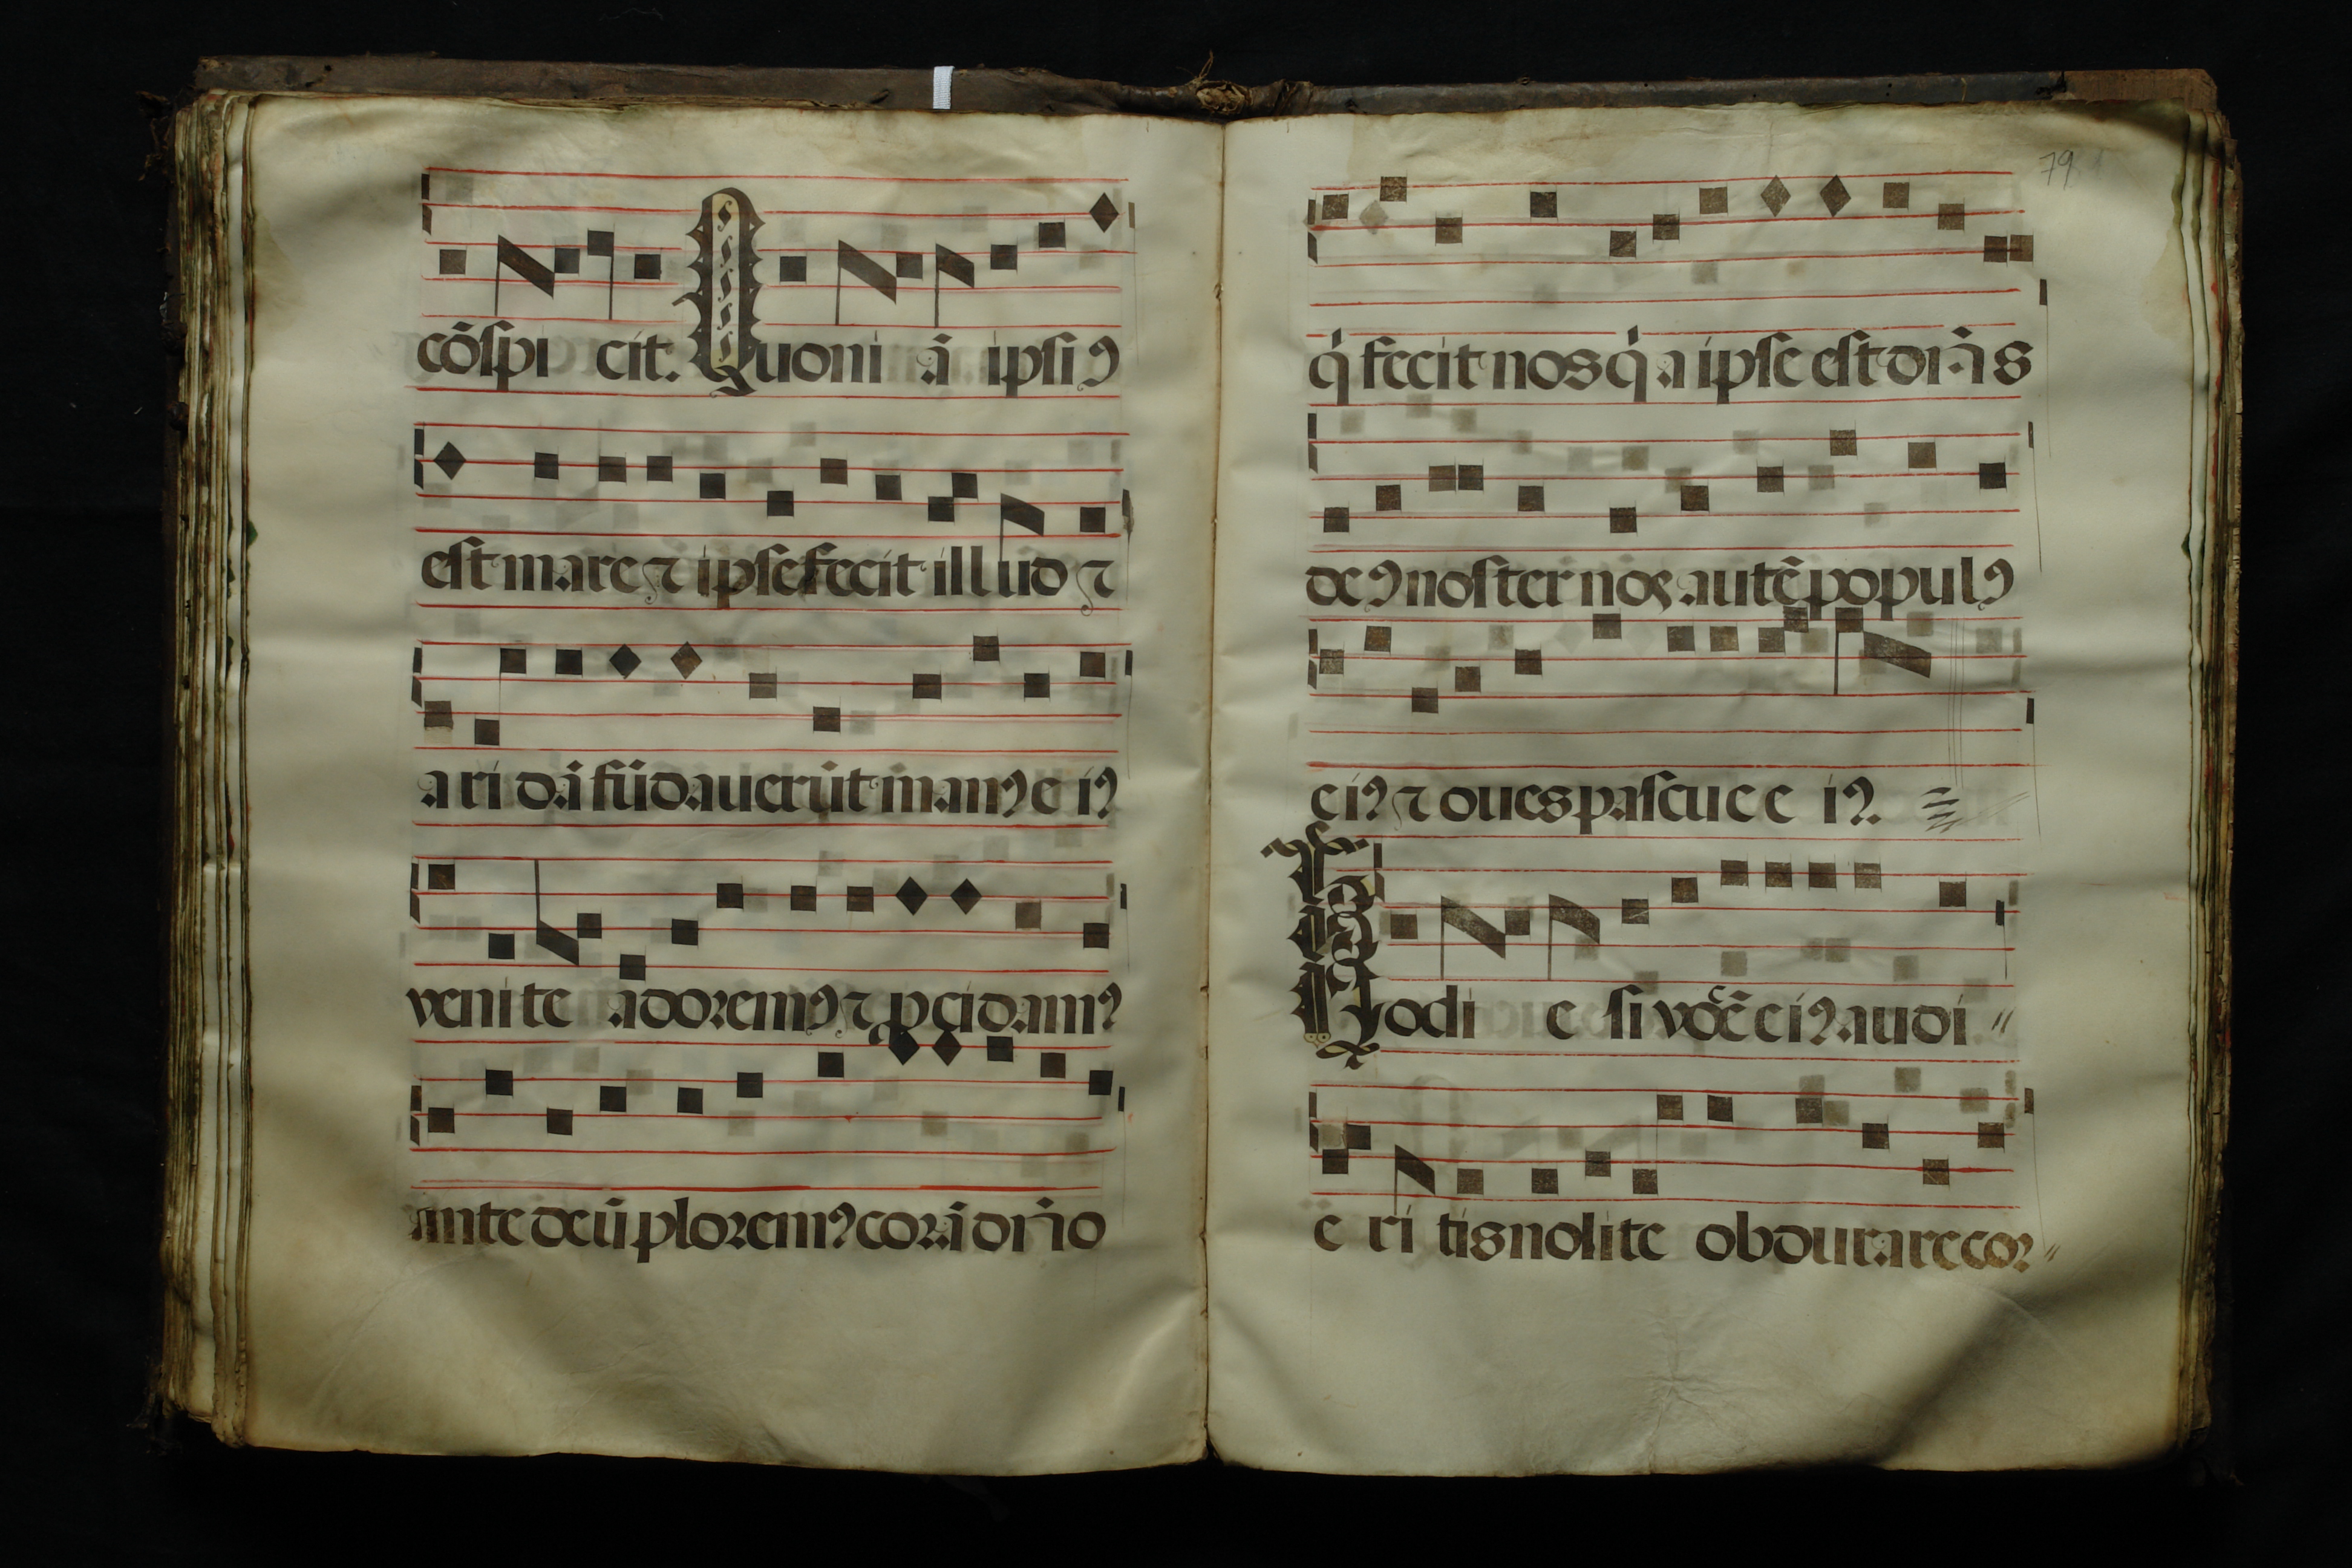 cōspi cit. Quoni ā ipsiꝰ
est mare ⁊ ipse fecit illud ⁊
a ri dā fūdauerūt manꝰ e iꝰ
venite adoremꝰ ⁊ ꝓcidamꝰ
ante deū ploremꝰ corā dn̄o
79
qͥ fecit nos qͥa ipse est dn̄s
deꝰ noster nos autē populꝰ
eiꝰ ⁊ oues pascue e iꝰ.
Hodi e si vocē eiꝰ audi〃
e ri tis nolite obdurare cor〃